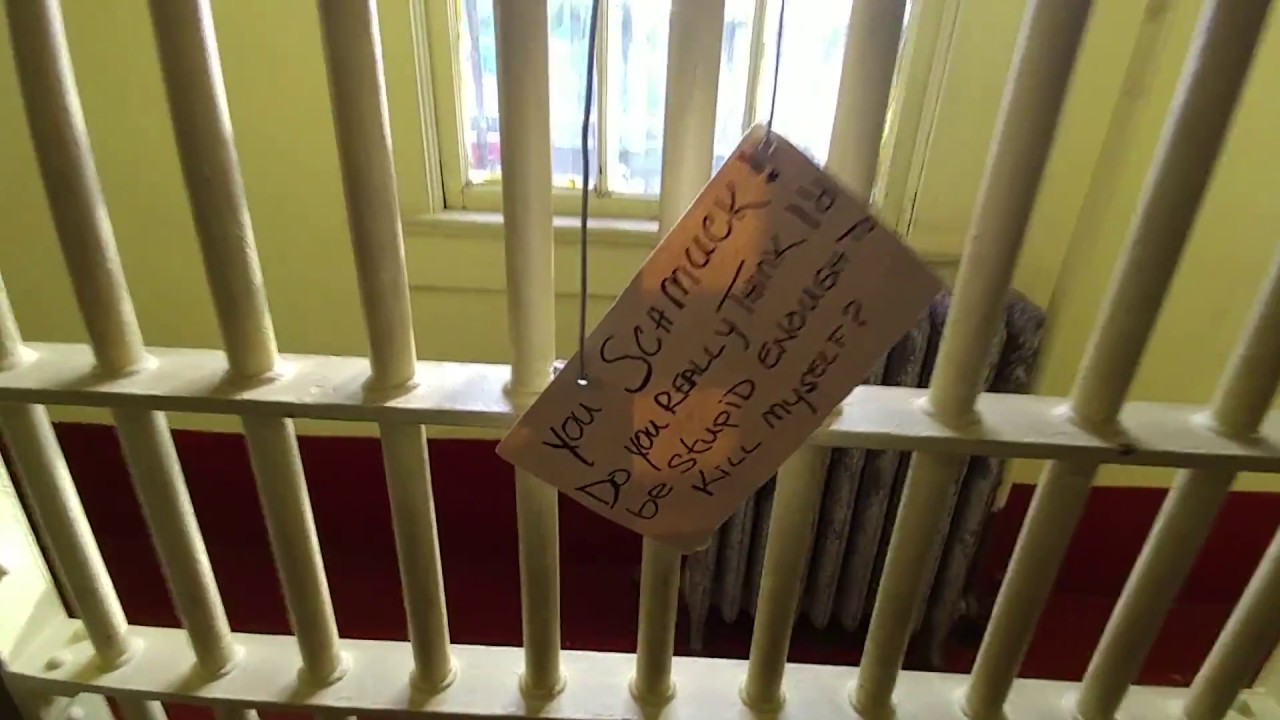 You SCAMUCK!
Do you REALLY Think I'd
be Stupid ENOUGH
Kill MySELF?